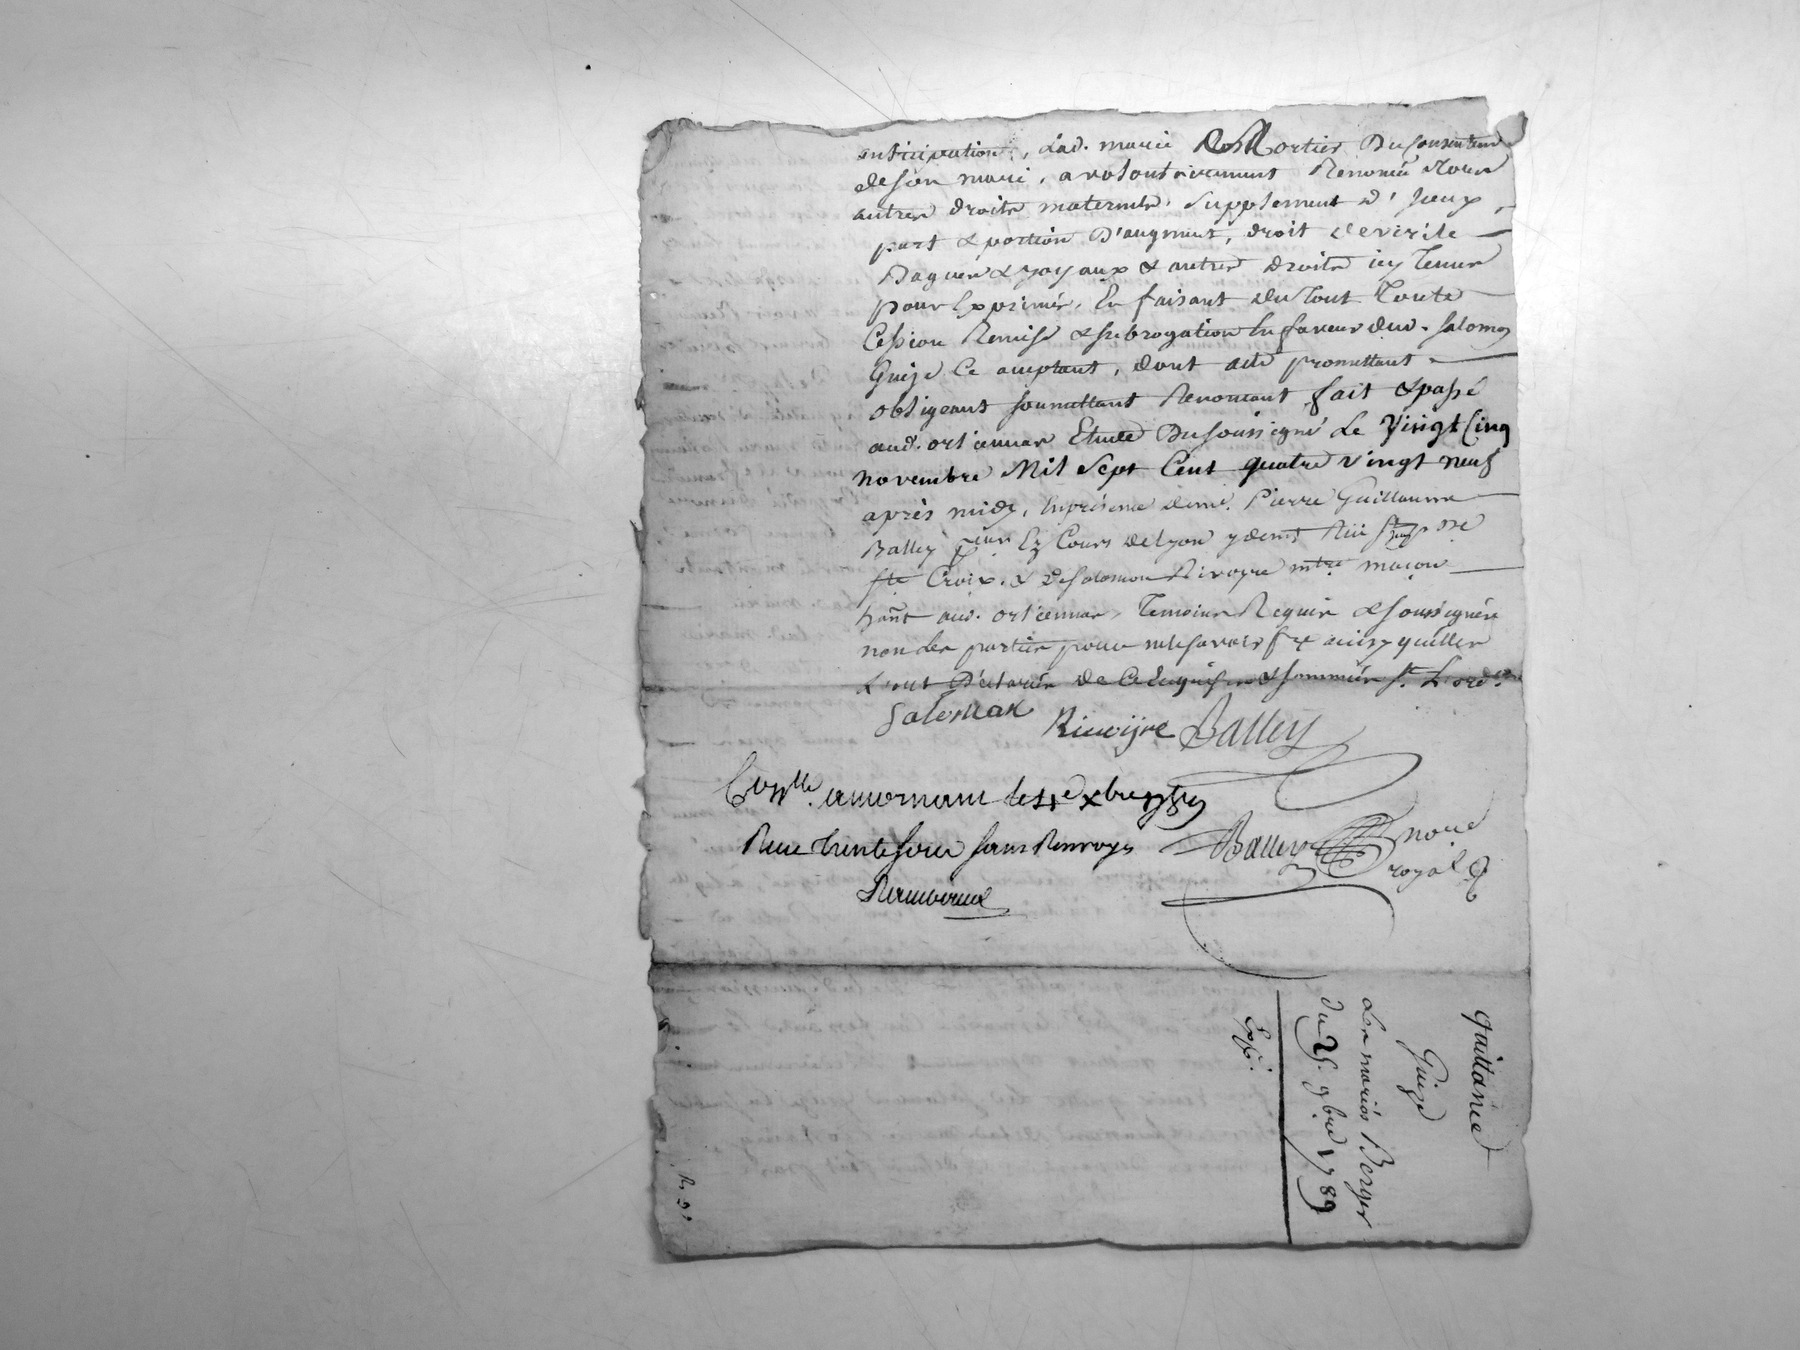 anticipation, lad. marie DesMortier Du Consentem
de son mari, a volontairement Renoncé a tous
autres droits maternels, supplement d'iceux,
part & portion d'augment, droit de virile
Bagues & joyaux & autres droits icy tenus
pour Exprimés, En faisant du tout Toute
Cession Remise & subrogation En faveur dud. Salomon
Guize Ce acceptant, dont acte promettant
obligeant soumettant Renoncant fait & passé
aud. ortienas Etude Du soussigné Le Vingt Cinq
novembre Mil Sept Cent quatre vingt neuf
après midy, En présence de me. Pierre Guillaume
Balley Ez Cours de Lyon y demt Rüe psse
Ste Croix, & de Salomon Rivoyre mtre maçon
hant aud. ortienas, Temoins Requis & soussignés
non les parties pour ne le savoir fe ainsy quelles
L'ont Déclarés de Ce Enquises & sommées St. L'orde.
Salomon Rivoijre Balley
Conllé a mornant le xbre 1789
Reçu trente sous sans Renvoys
Balley nore
royal
quittance
Guize
Les mariés Berger
du 25. 9bre 1789
Exp.